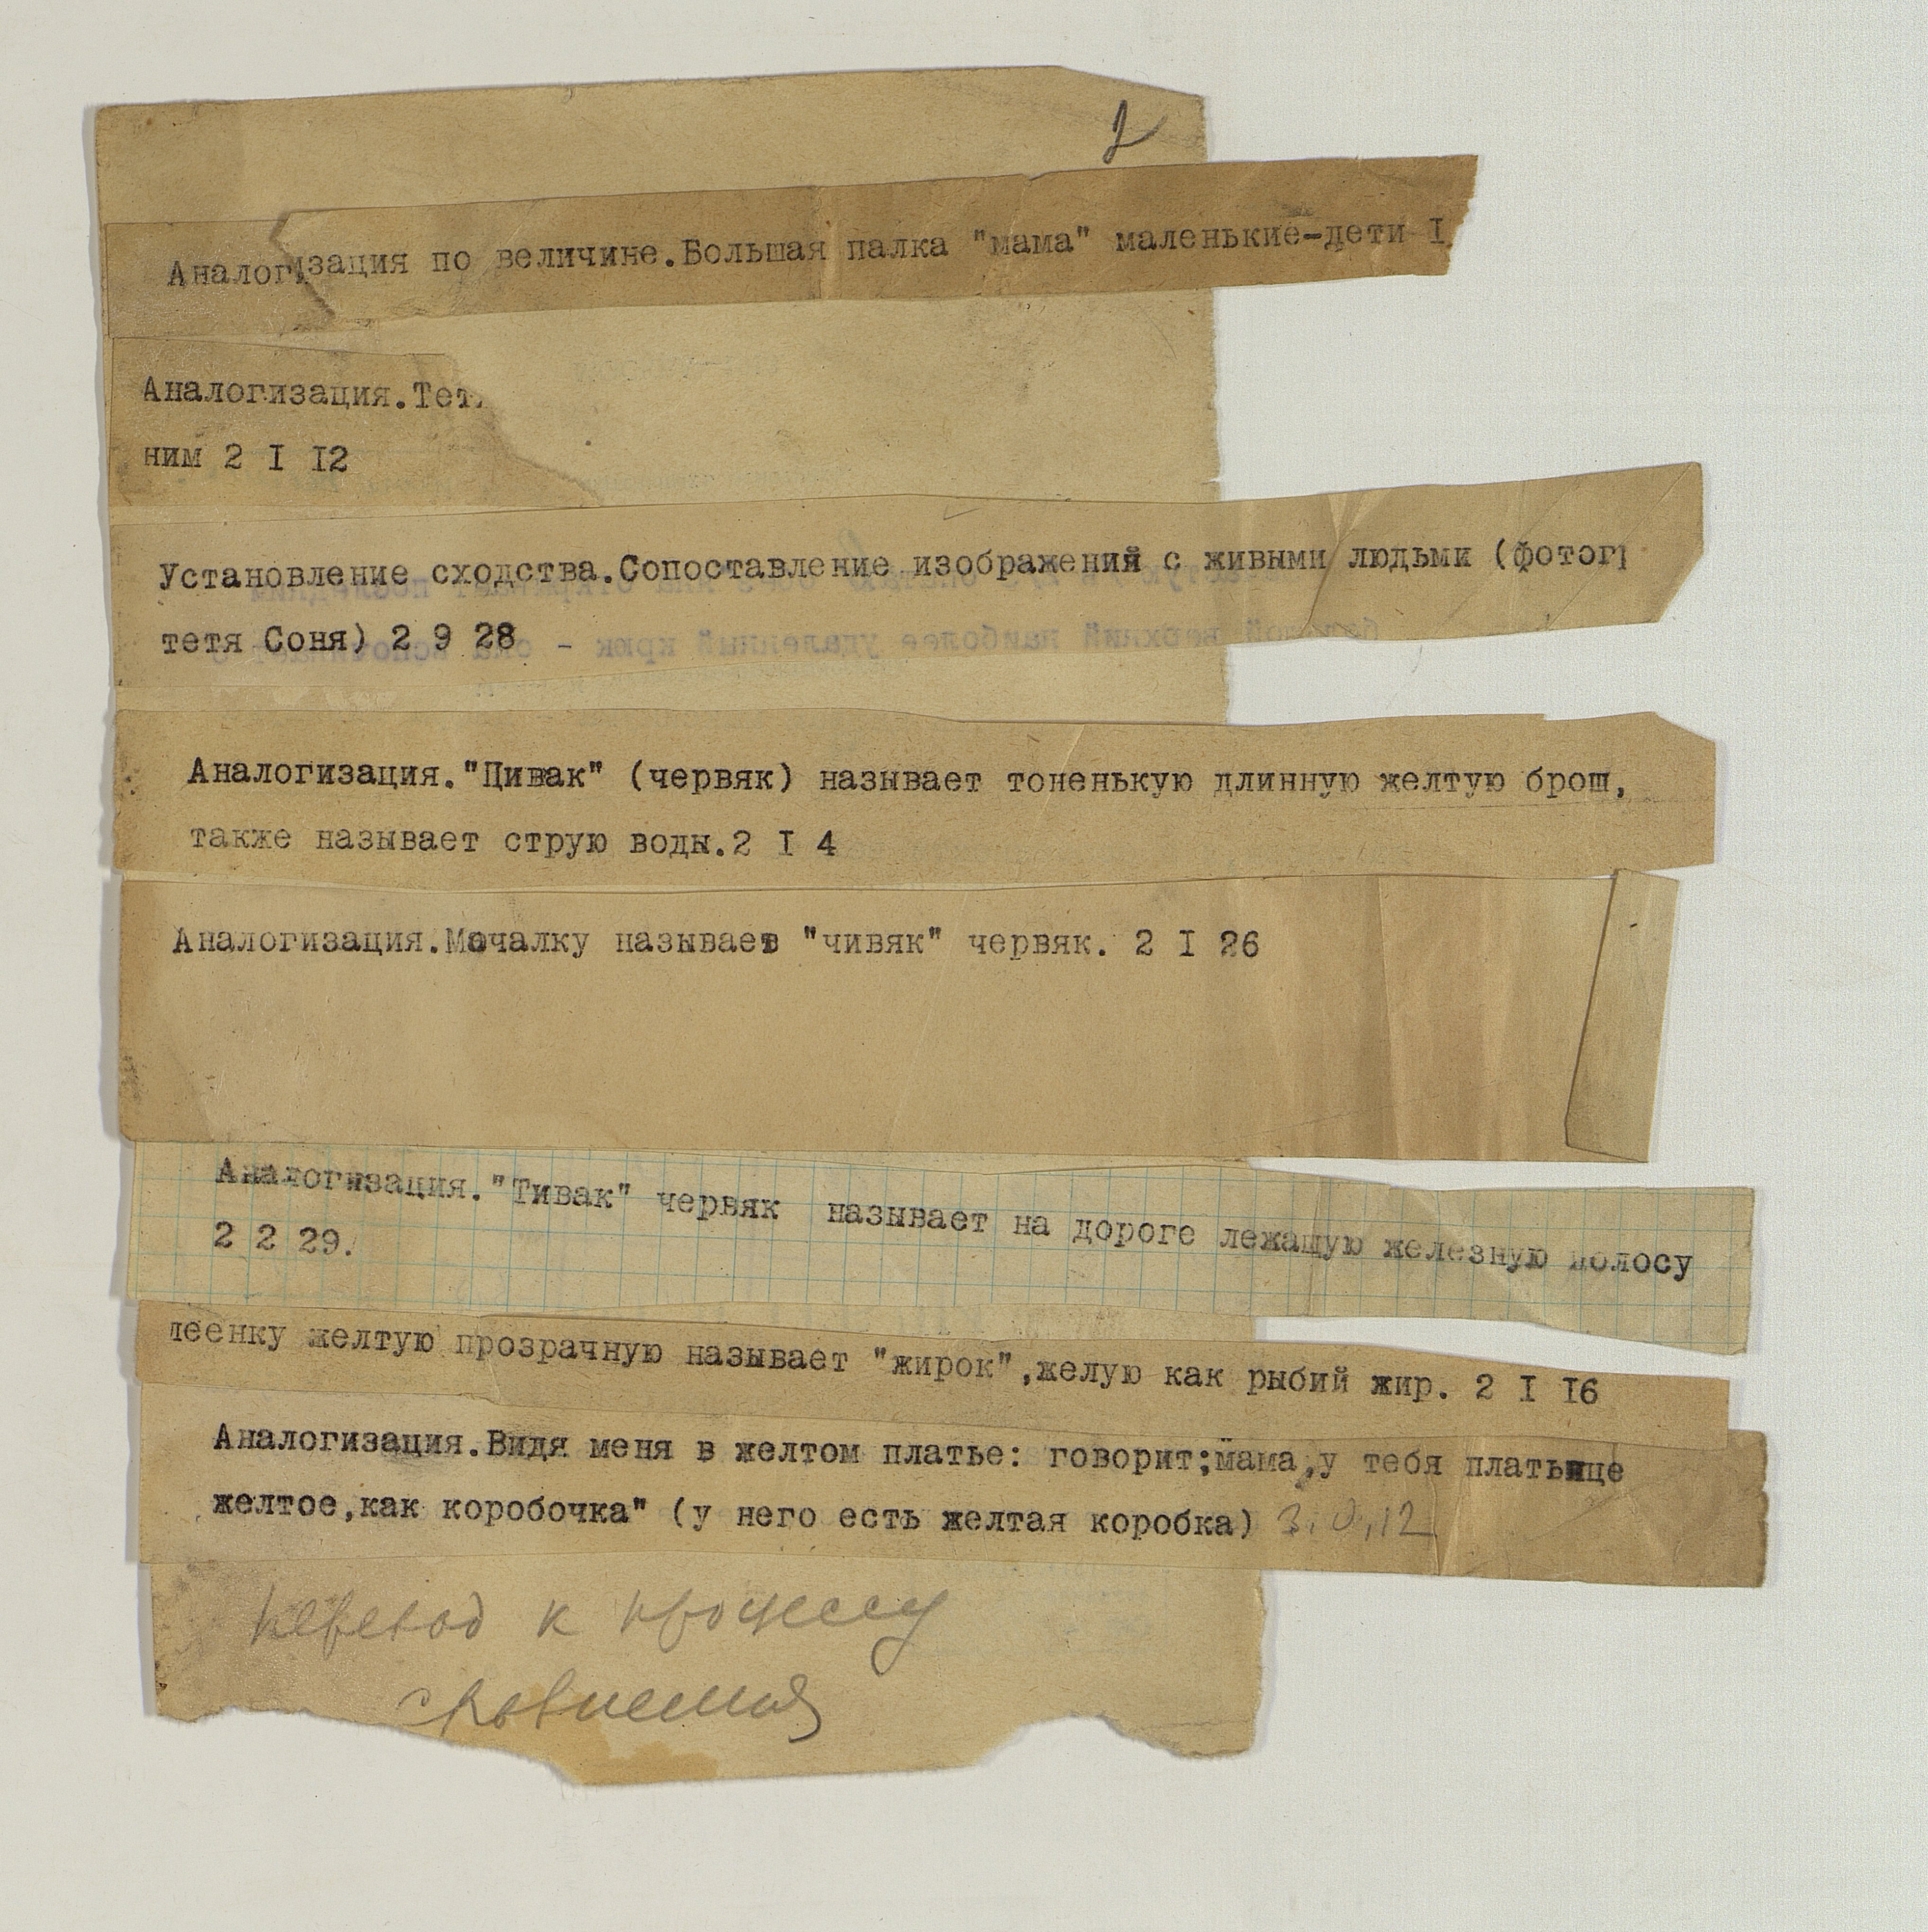 2
Аналогизация по величине.Большая палка "мама" маленькие-дети I
Аналогизация.Тет
ним 2 I I2
Установление сходства.Сопоставление изображений с живыми людьми (фотог
тетя Соня) 2 9 28
Аналогизация."Цивак" (червяк) называет тоненькую длинную желтую брош,
также называет струю воды.2 I 4
Аналогизация.Мочалку называет "чивяк" червяк. 2 I 26
Аналогизация."Тивак" червяк называет на дороге лежащую железную полосу
2 2 29.
леенку желтую прозрачную называет "жирок",желую как рыбий жир. 2 I I6
Аналогизация.Видя меня в желтом платье: говорит;"мама,у тебя платьице
желтое,как коробочка" (у него есть желтая коробка) 3,0,12
перевод к процессу
сравнения